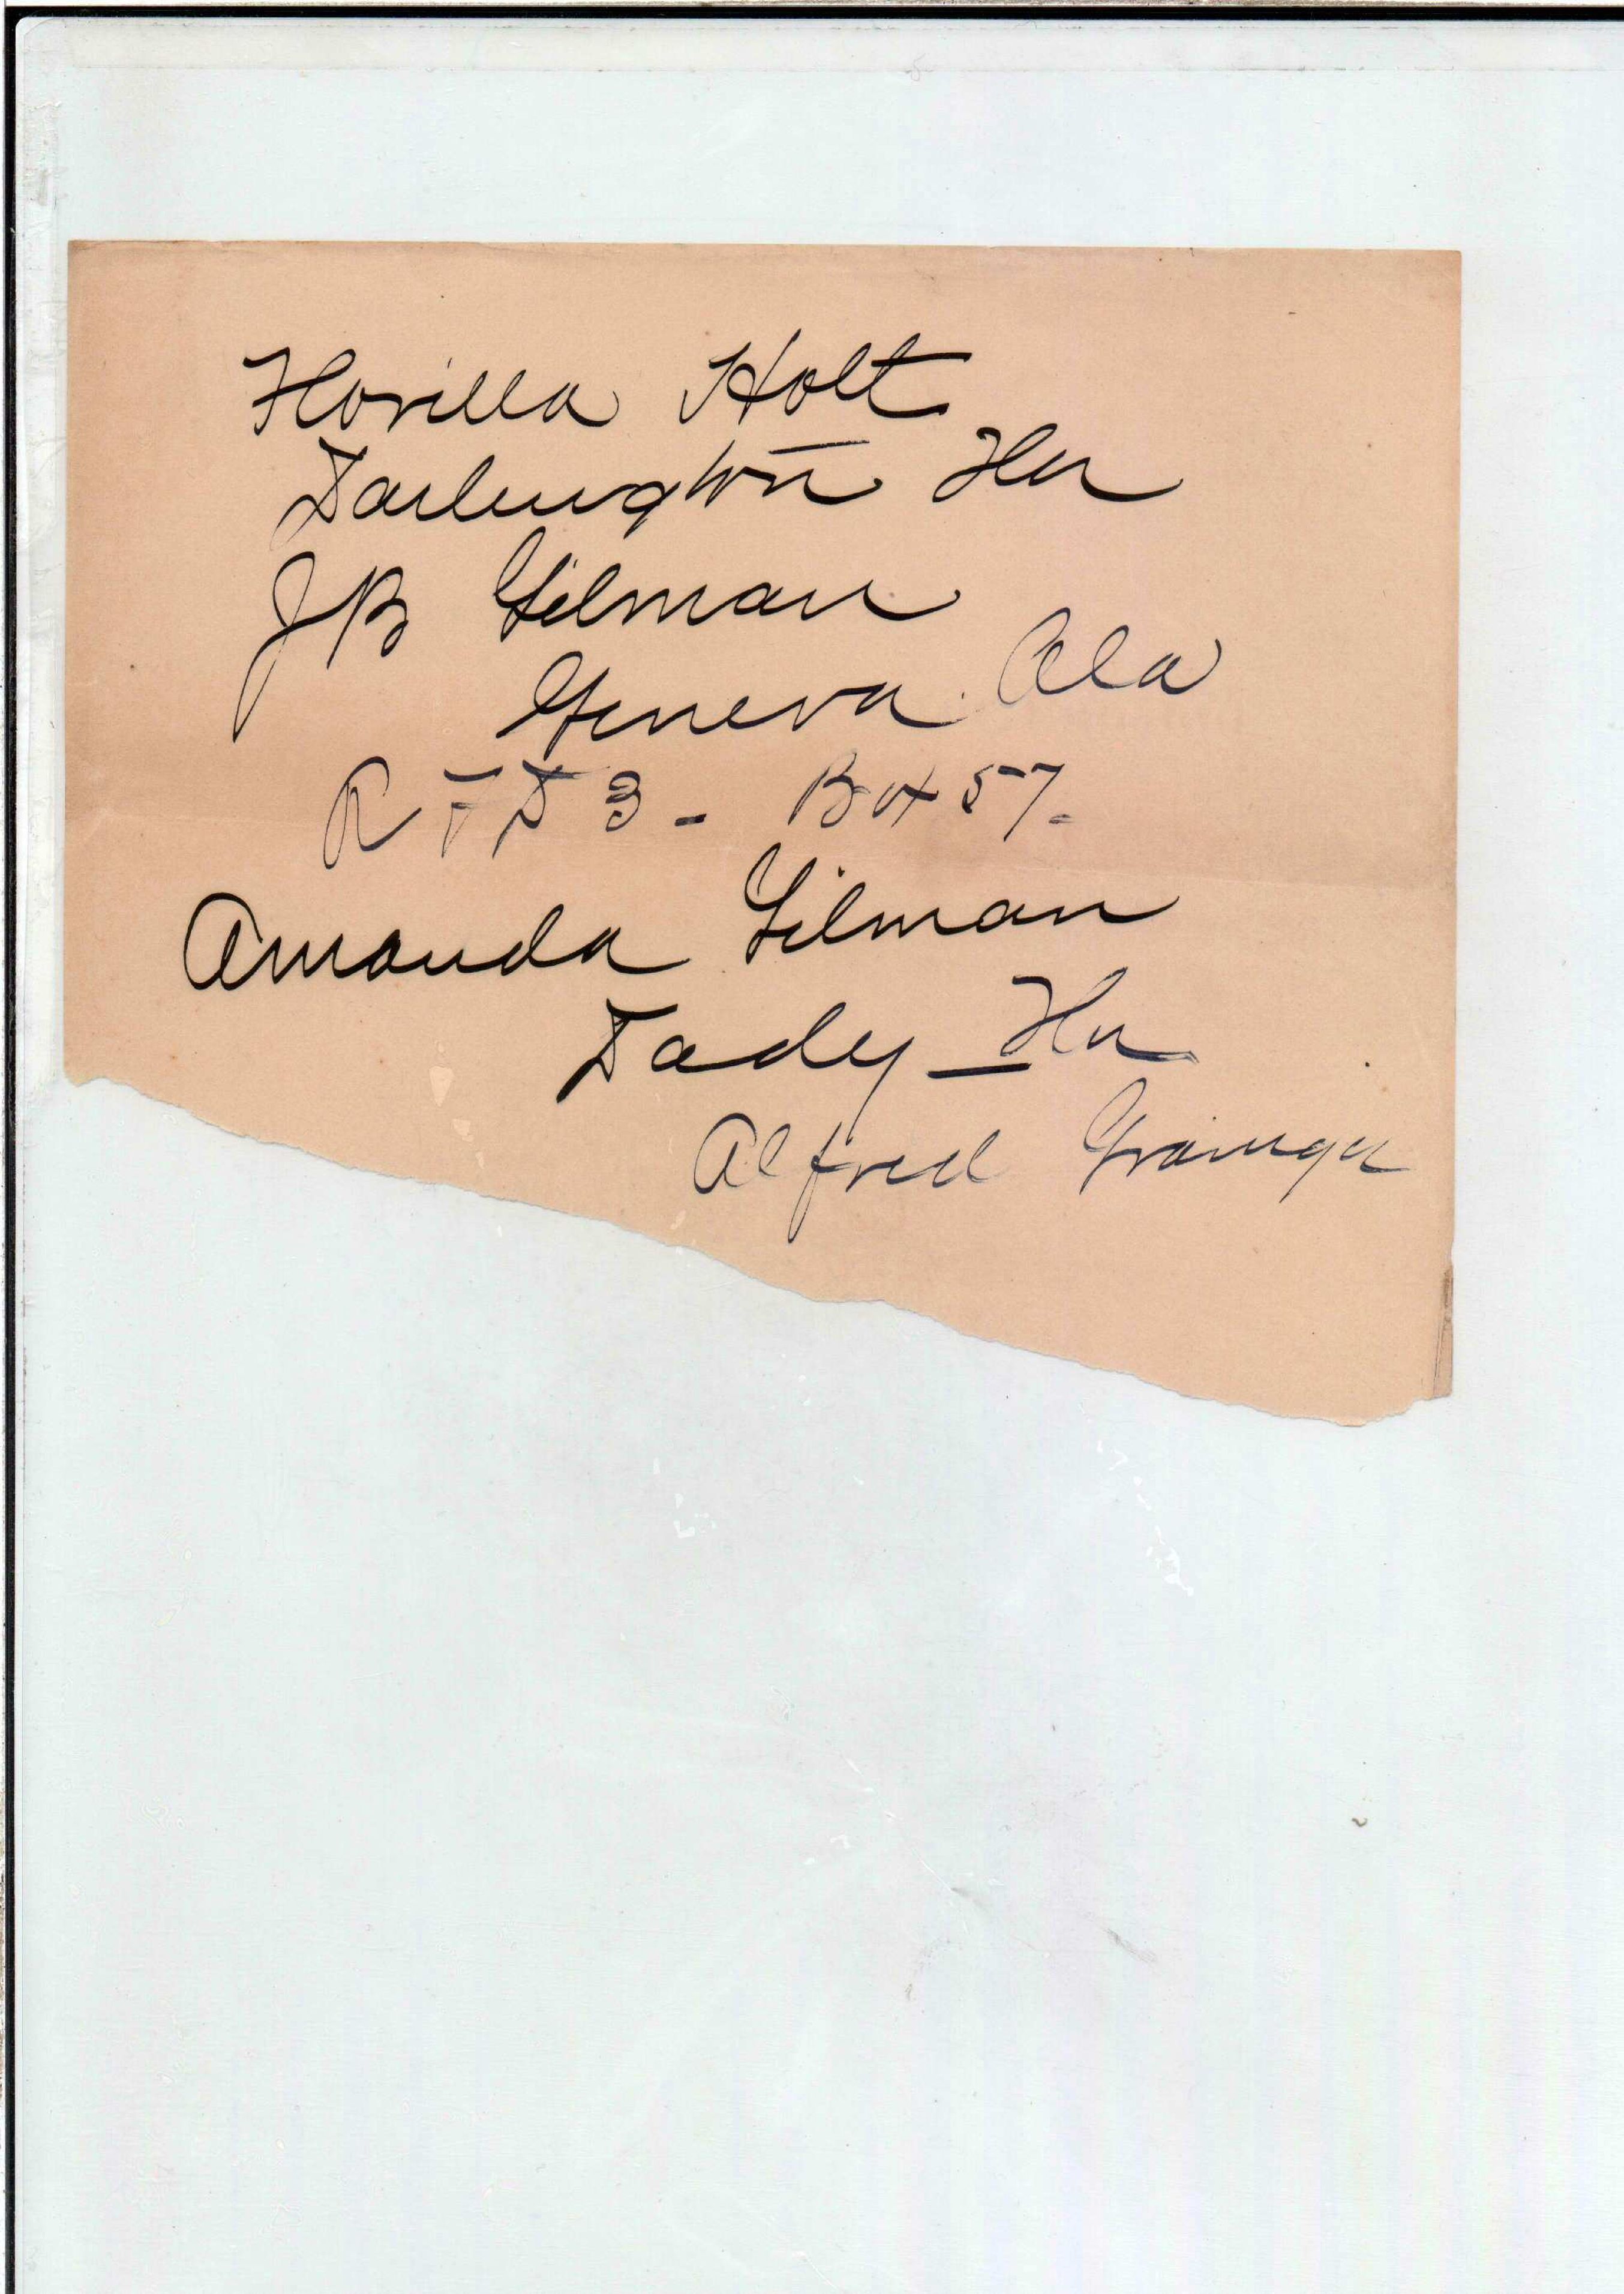 Florilla Holt
Darlington Fla
J B Gilman
Geneva Ala
R F D 3 - Box 57-
Amanda Gilman
Dady - Fla
Alfred Grainger